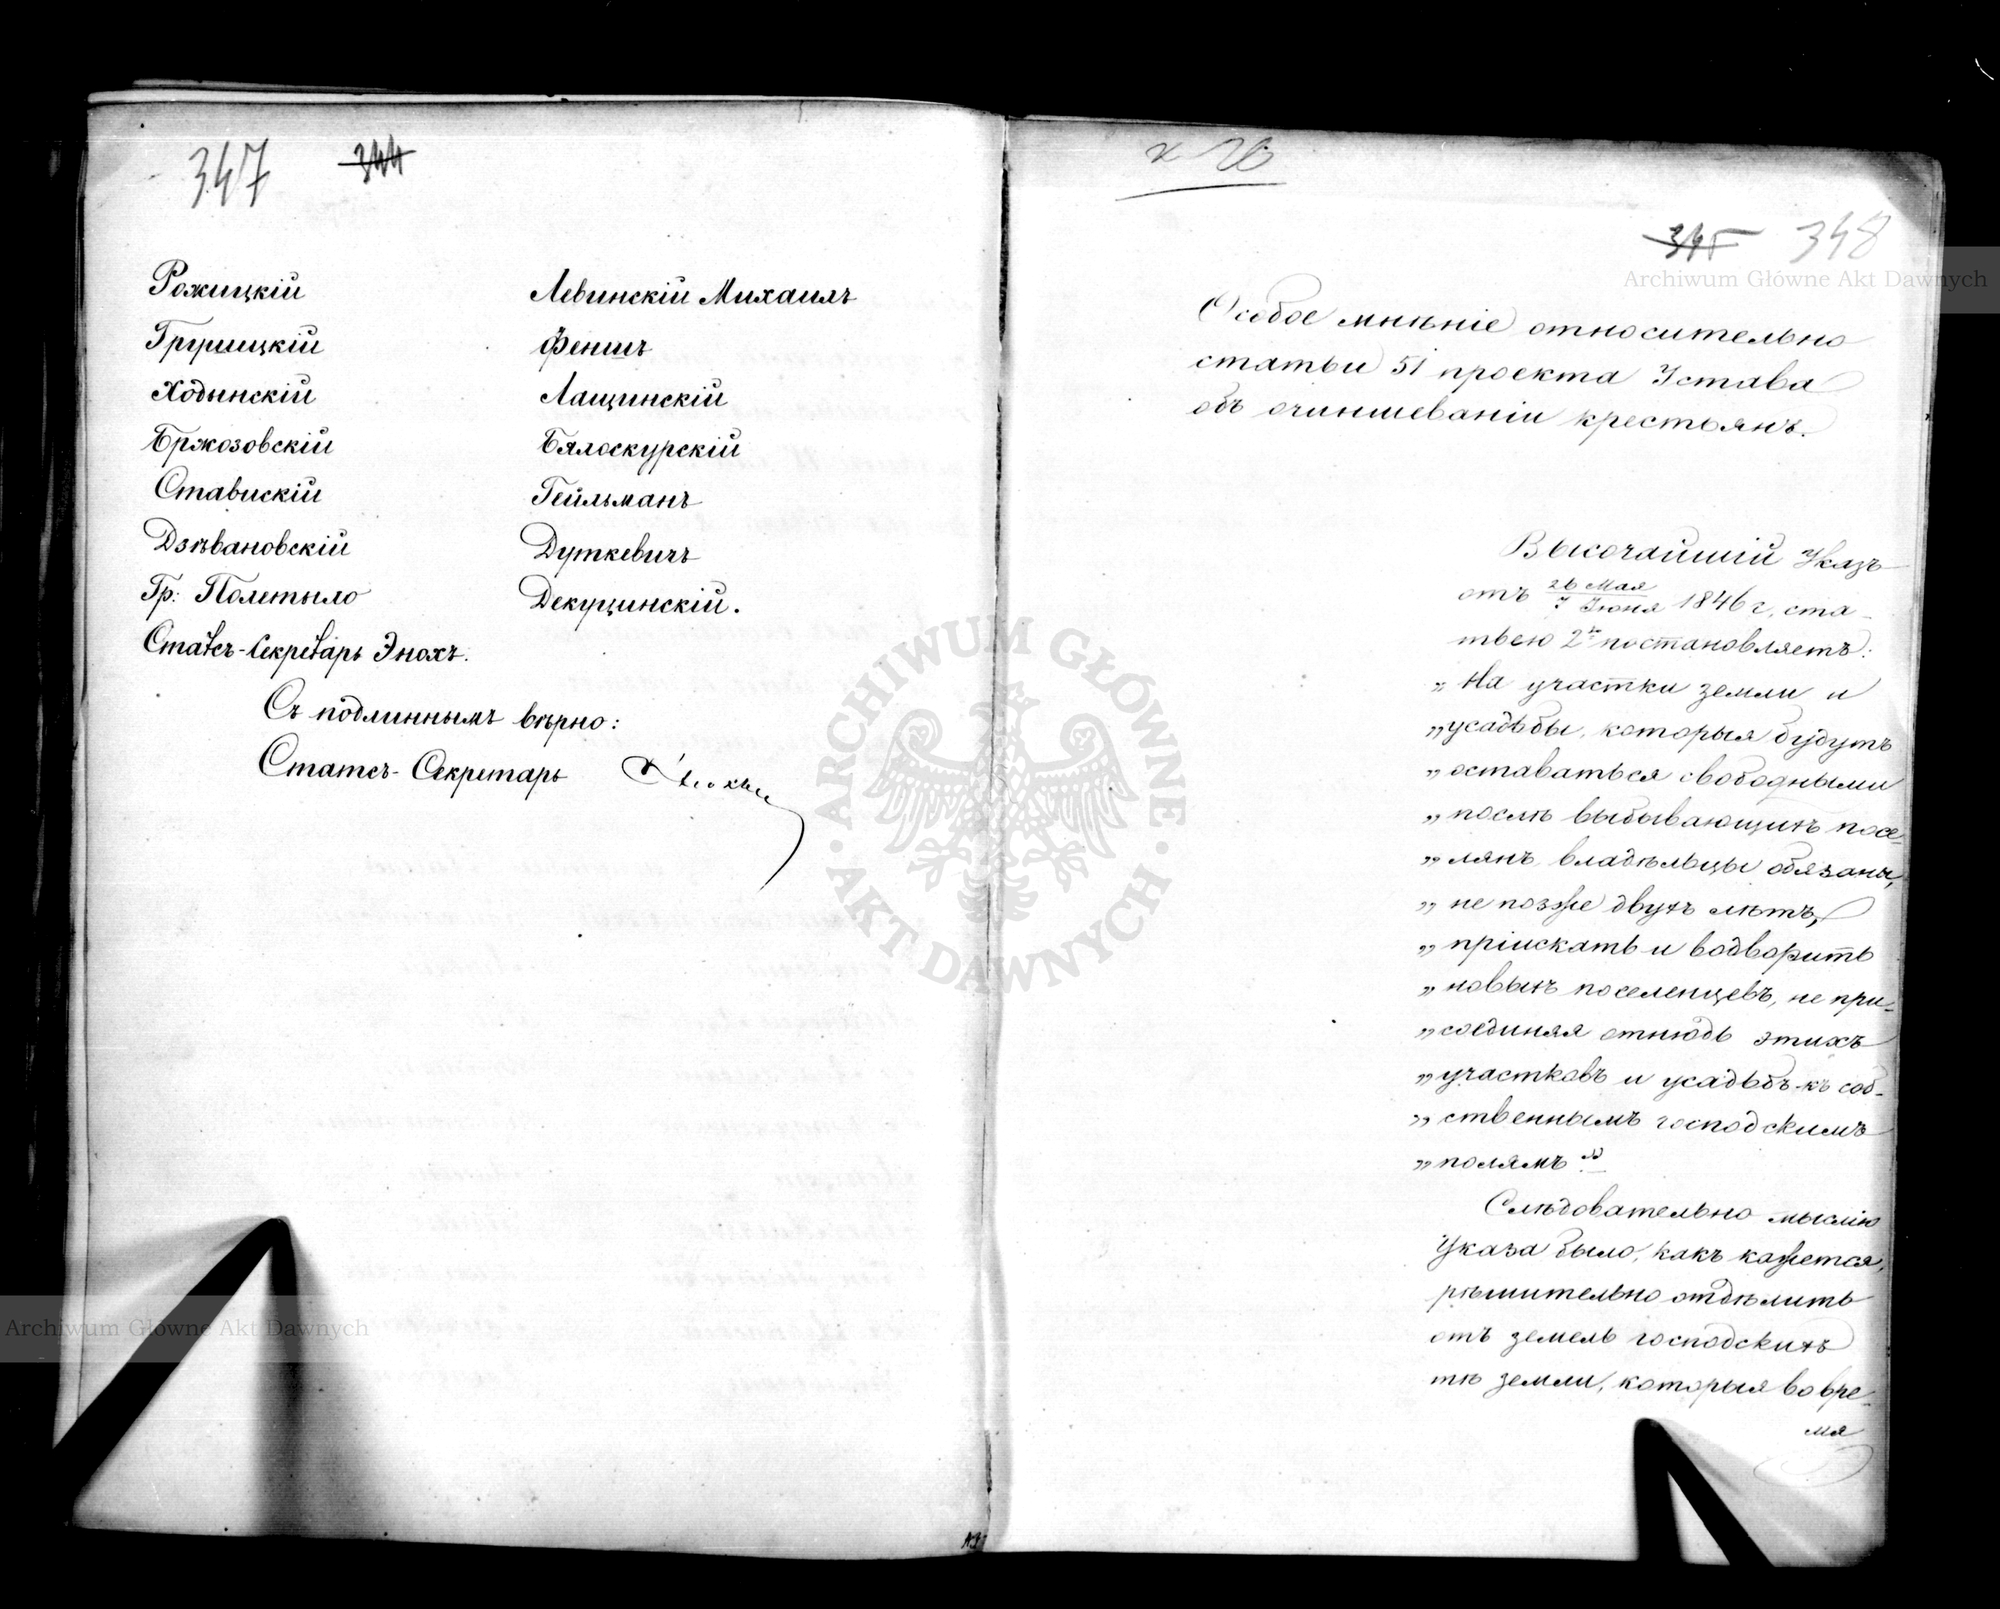 347 344
Рожицкій
Грушецкій
Ходынскій
Бржозовскій
Ставискій
Дзѣвановскій
Гр: Полетыло
Статсъ-Секретарь Энохъ.
Левинскій Михаилъ
Феншъ
Лащинскій
Бялоскурскій
Гейльманъ
Дуткевичъ
Декуцинскій.
Съ подлиннымъ вѣрно:
Статсъ-Секретарь Энохъ
345 348
Особое мнѣніе относительно
статьи 51 проекта Устава
объ очиншеваніи крестьянъ.
Высочайшій Указъ
отъ 26 Мая/7 Іюня 1846 г, ста-
тьею 2ю постановляетъ:
„На участки земли и
„усадьбы, которыя будутъ
„оставаться свободными
„послѣ выбывающихъ посе-
„лянъ владѣльцы обязаны,
„не позже двухъ лѣтъ,
„пріискать и водворить
„новыхъ поселенцевъ, не при-
„соединяя отнюдь этихъ
„участковъ и усадьбъ къ соб-
„ственнымъ господскимъ
„полямъ"
Слѣдовательно мыслію
Указа было, какъ кажется,
рѣшительно отдѣлить
отъ земель господскихъ
тѣ земли, которыя во вре-
мя
Archiwum Główne Akt Dawnych
Archiwum Główne Akt Dawnych
ARCHIWUM GŁÓWNE · AKT DAWNYCH ·